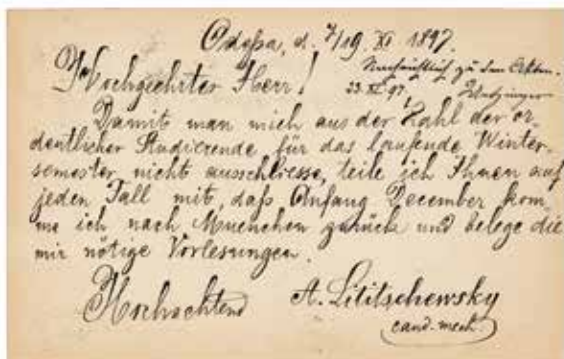 Odessa, d. 7/19. XI 1897.
Hochgeehrter Herr!
Nachrichtlich zu den Akten.
23. XI. 97.
Damit man mich aus der Zahl der or-
dentlicher Studierende für das laufende Winter-
semester nicht ausschliesse, teile ich Ihnen auf
jeden Fall mit, daß Anfang December kom-
me ich nach Muenchen zurück und belege die
mir nötige Vorlesungen.
Hochachtend A. Lititschewsky
cand. mech.